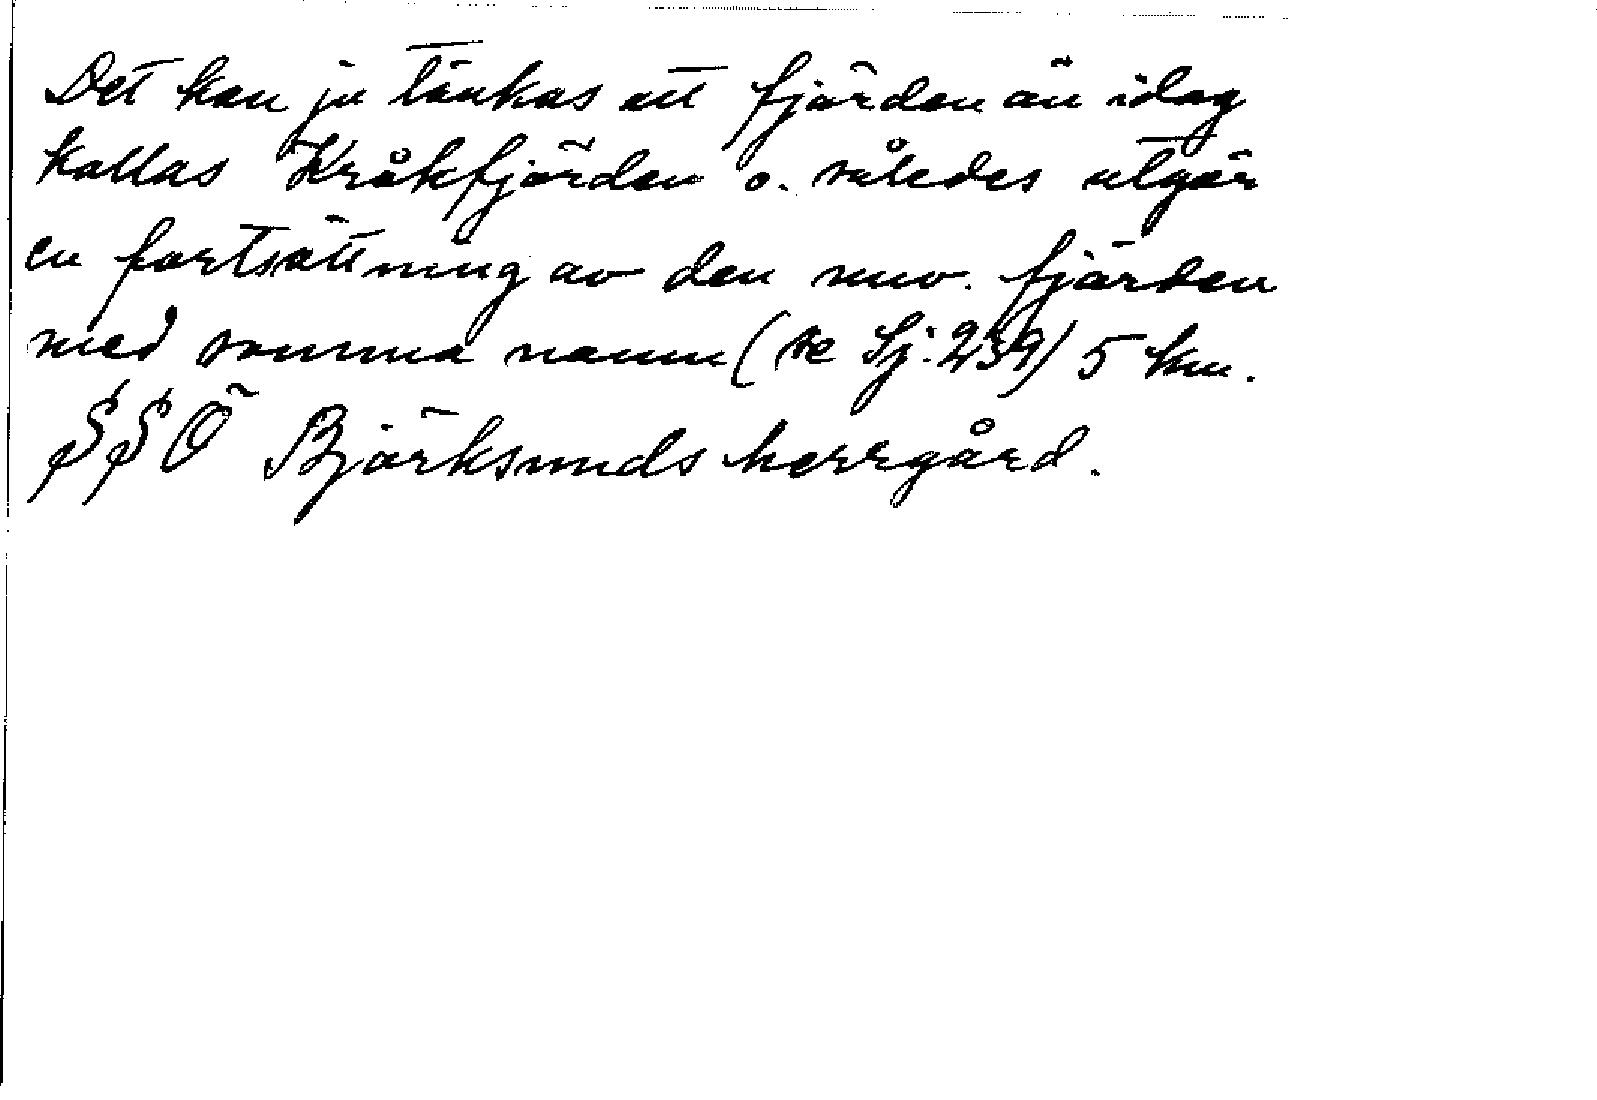 Det kan ju tänkas att fjärden än idag
kallas Kråkfjärden o. således utgör
en fortsättning av den nuv. fjärden
med samma namn (se Sj. 239) 5 km.
SSÖ Björksunds herrgård.